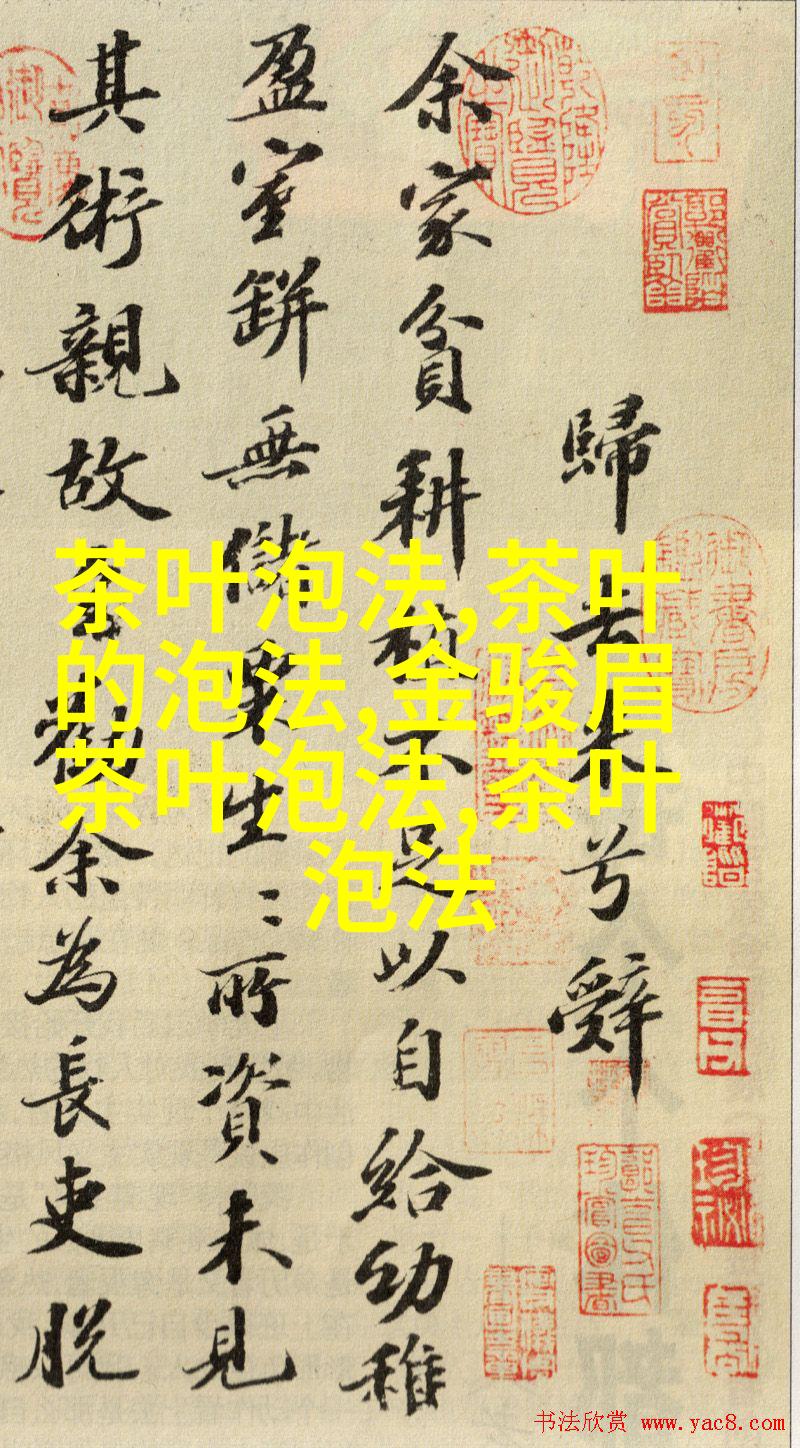 歸去来兮辭
余家貧耕植不足以自給幼稚
盈室缾無儲粟生〻所資未見
其術親故多勸余為長吏脱
茶叶泡法,茶叶
的泡法,金骏眉
茶叶泡法,茶叶
泡法
书法欣赏 www.yac8.com